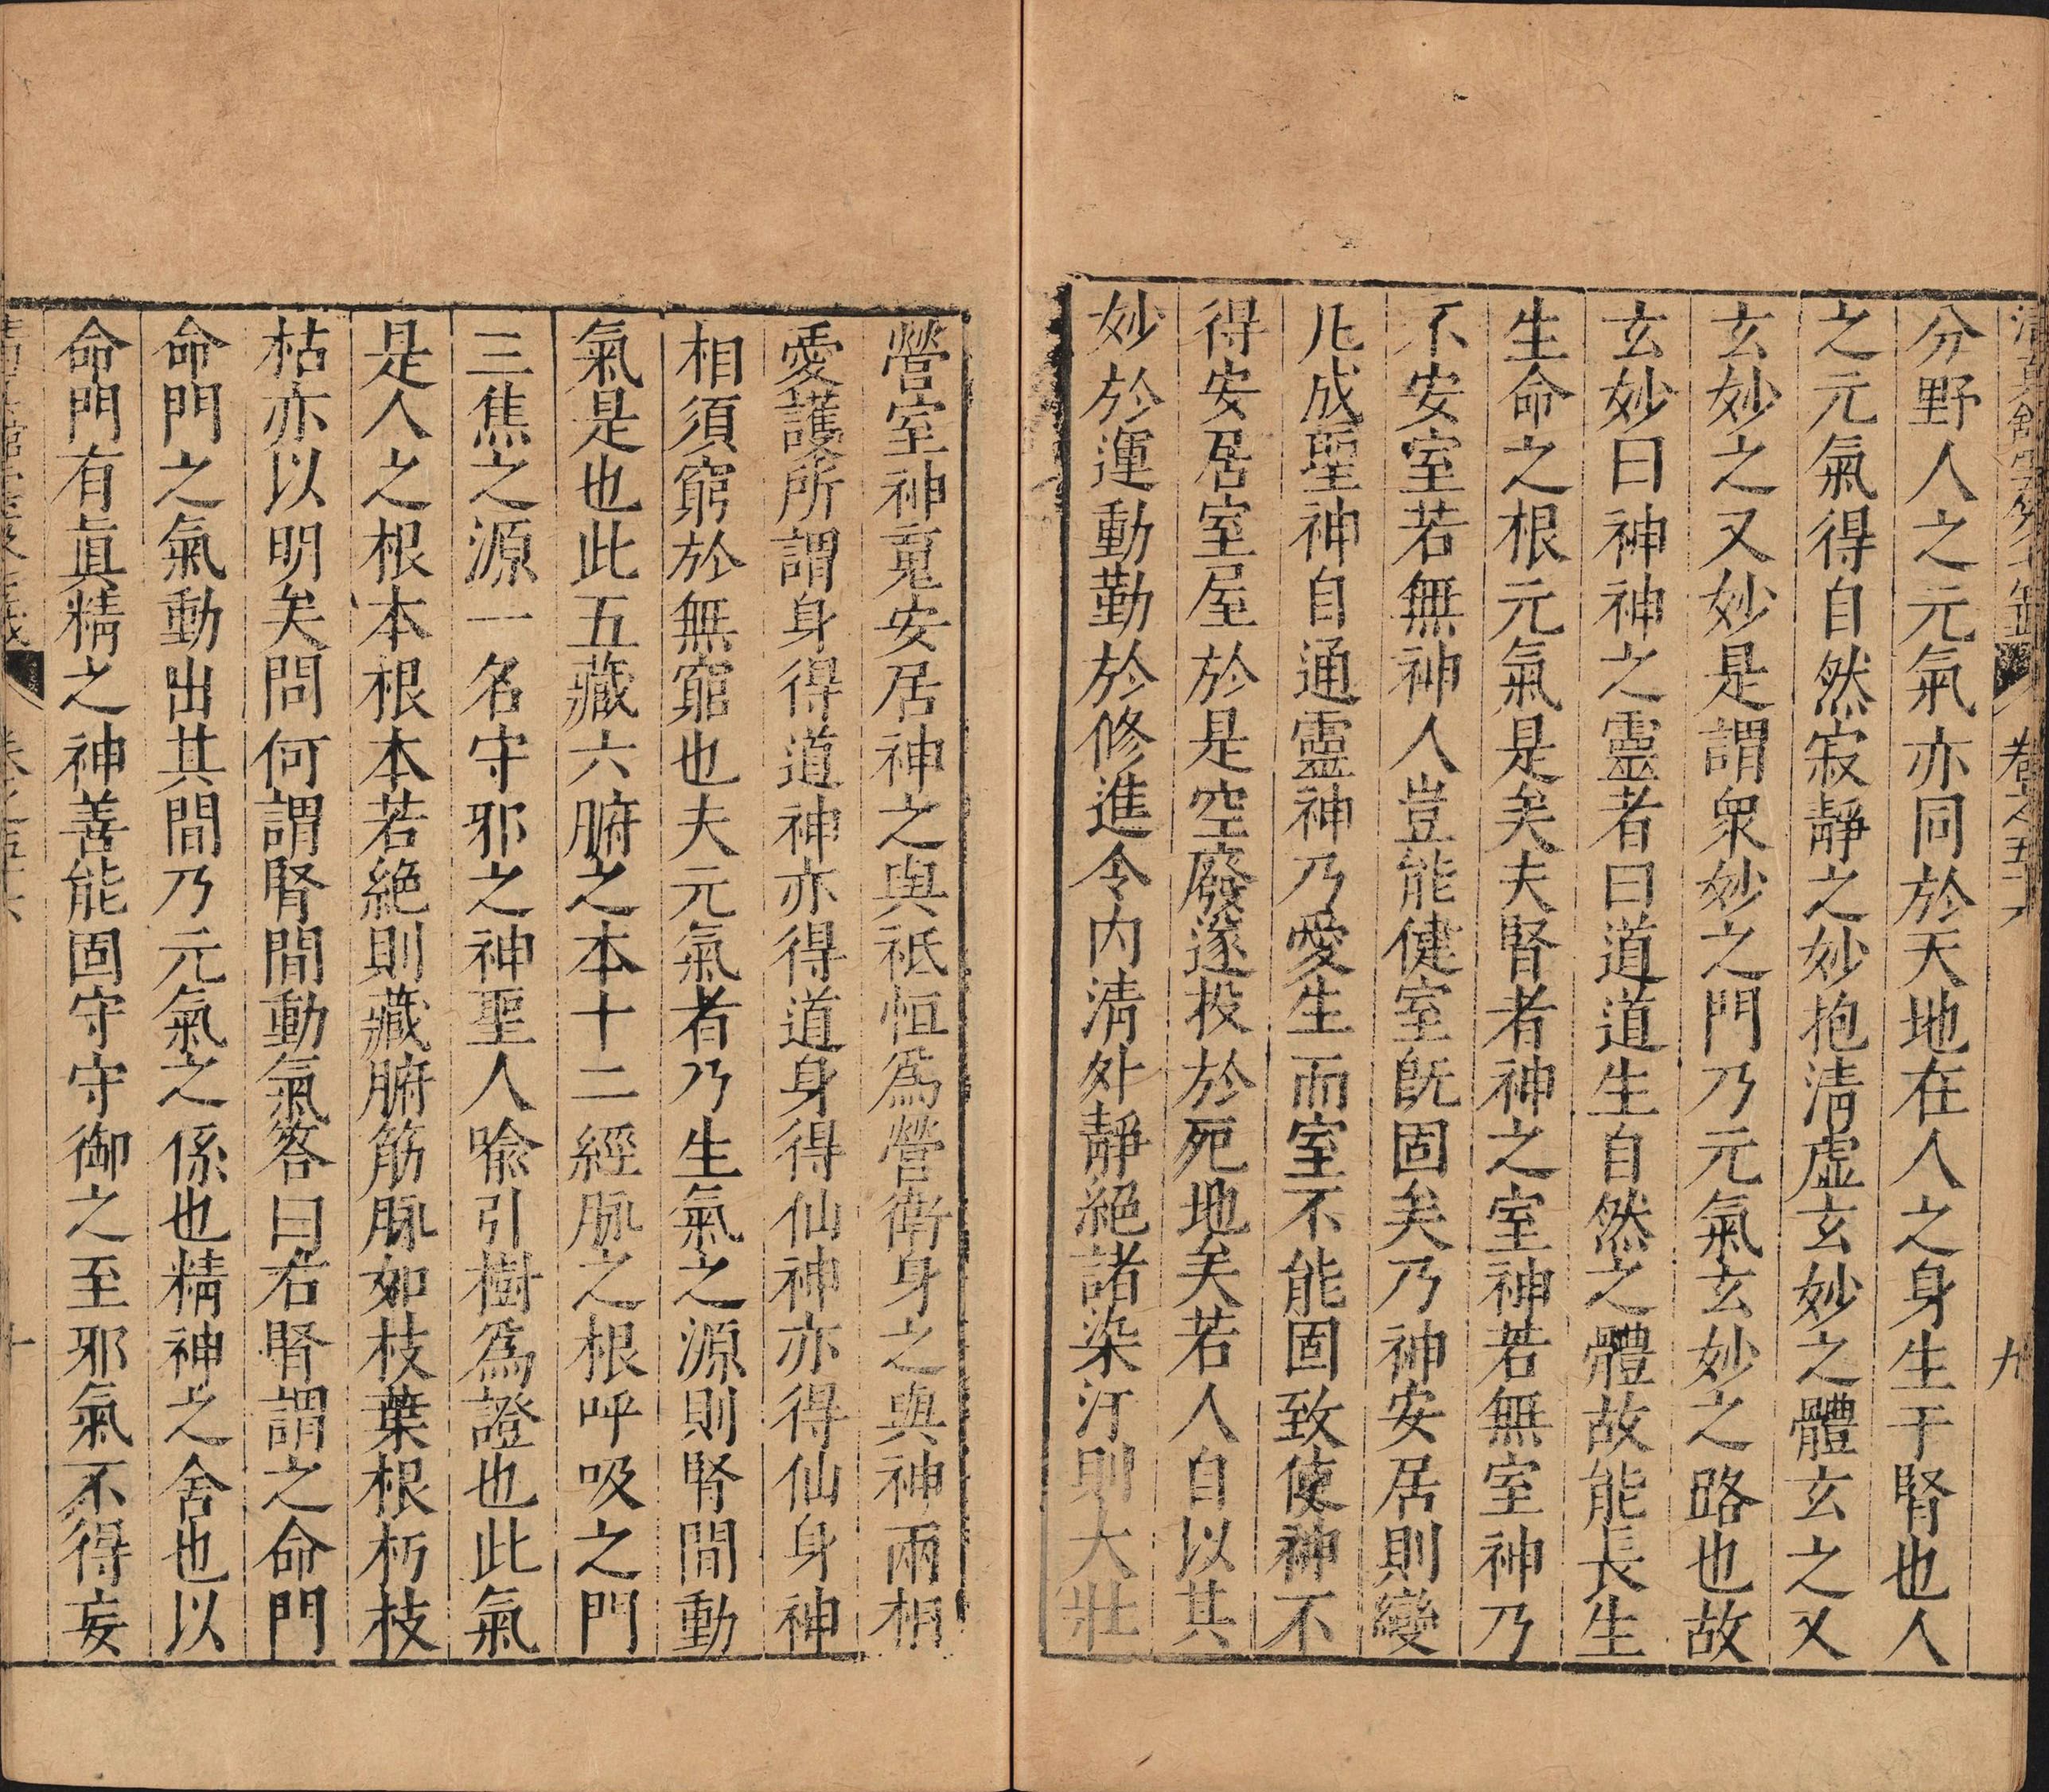 卷之五十六 九
分野人之元氣亦同於天地在人之身生于腎也人
之元氣得自然寂靜之妙抱淸虛玄妙之體玄之又
玄妙之又妙是謂衆妙之門乃元氣玄妙之路也故
玄妙曰神神之靈者曰道道生自然之體故能長生
生命之根元氣是矣夫腎者神之室神若無室神乃
不安室若無神人豈能健室旣固矣乃神安居則變
凡成聖神自通靈神乃愛生而室不能固致使神不
得安居室屋於是空廢遂投於死地矣若人自以其
妙於運動勤於修進令內淸外靜絕諸染汙則大壯
營室神䰟安居神之與祗恒爲營衛身之與神兩相
愛護所謂身得道神亦得道身得仙神亦得仙身神
相須窮於無窮也夫元氣者乃生氣之源則腎間動
氣是也此五藏六腑之本十二經脉之根呼吸之門
三焦之源一名守邪之神聖人喩引樹爲證也此氣
是人之根本根本若絕則藏腑筋脉如枝葉根朽枝
枯亦以明矣問何謂腎間動氣答曰右腎謂之命門
命門之氣動出其間乃元氣之係也精神之舍也以
命門有眞精之神善能固守守御之至邪氣不得妄
十